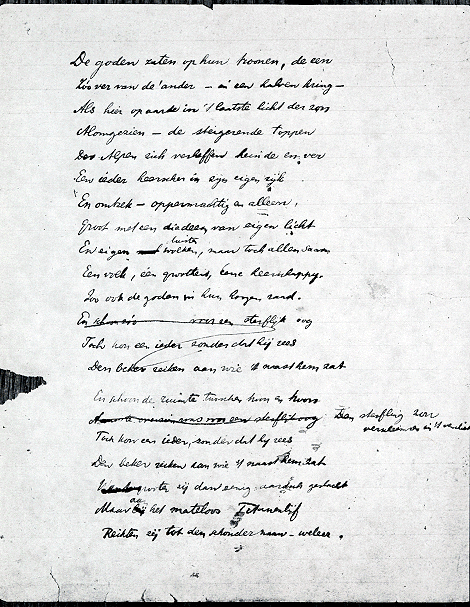 De goden zaten op hun troonen, de een
Zóó ver van de' ander – in een halven kring –
Als hier op aarde in 't laatste licht der zon
Alomgezien – de steigerende toppen
Der Alpen zich verheffen heinde en ver
Een ieder heerscher in zijn eigen rijk
En omtrek – oppermachtig en alleen,
Groot met een diadeem van eigen licht
En eigen luister, maar toch allen saam
Een volk, één grootheid, ééne heerschappij.
Zoo ook de goden in hun hoogen raad.
En schoon voor een sterflijk oog
Toch kon een ieder zonder dat hij rees
Den beker reiken aan wie 't naast hem zat
En schoon de ruimte tusschen hun en
een sterflijk oog Den sterfling zou
Toch kon een ieder, zonder dat hij rees
Den beker reiken aan wie 't naast hem zat
grooter zij dan eenig aardsch geslacht
Maar het mateloos
Reikten zij tot den schonder naar – weleer.